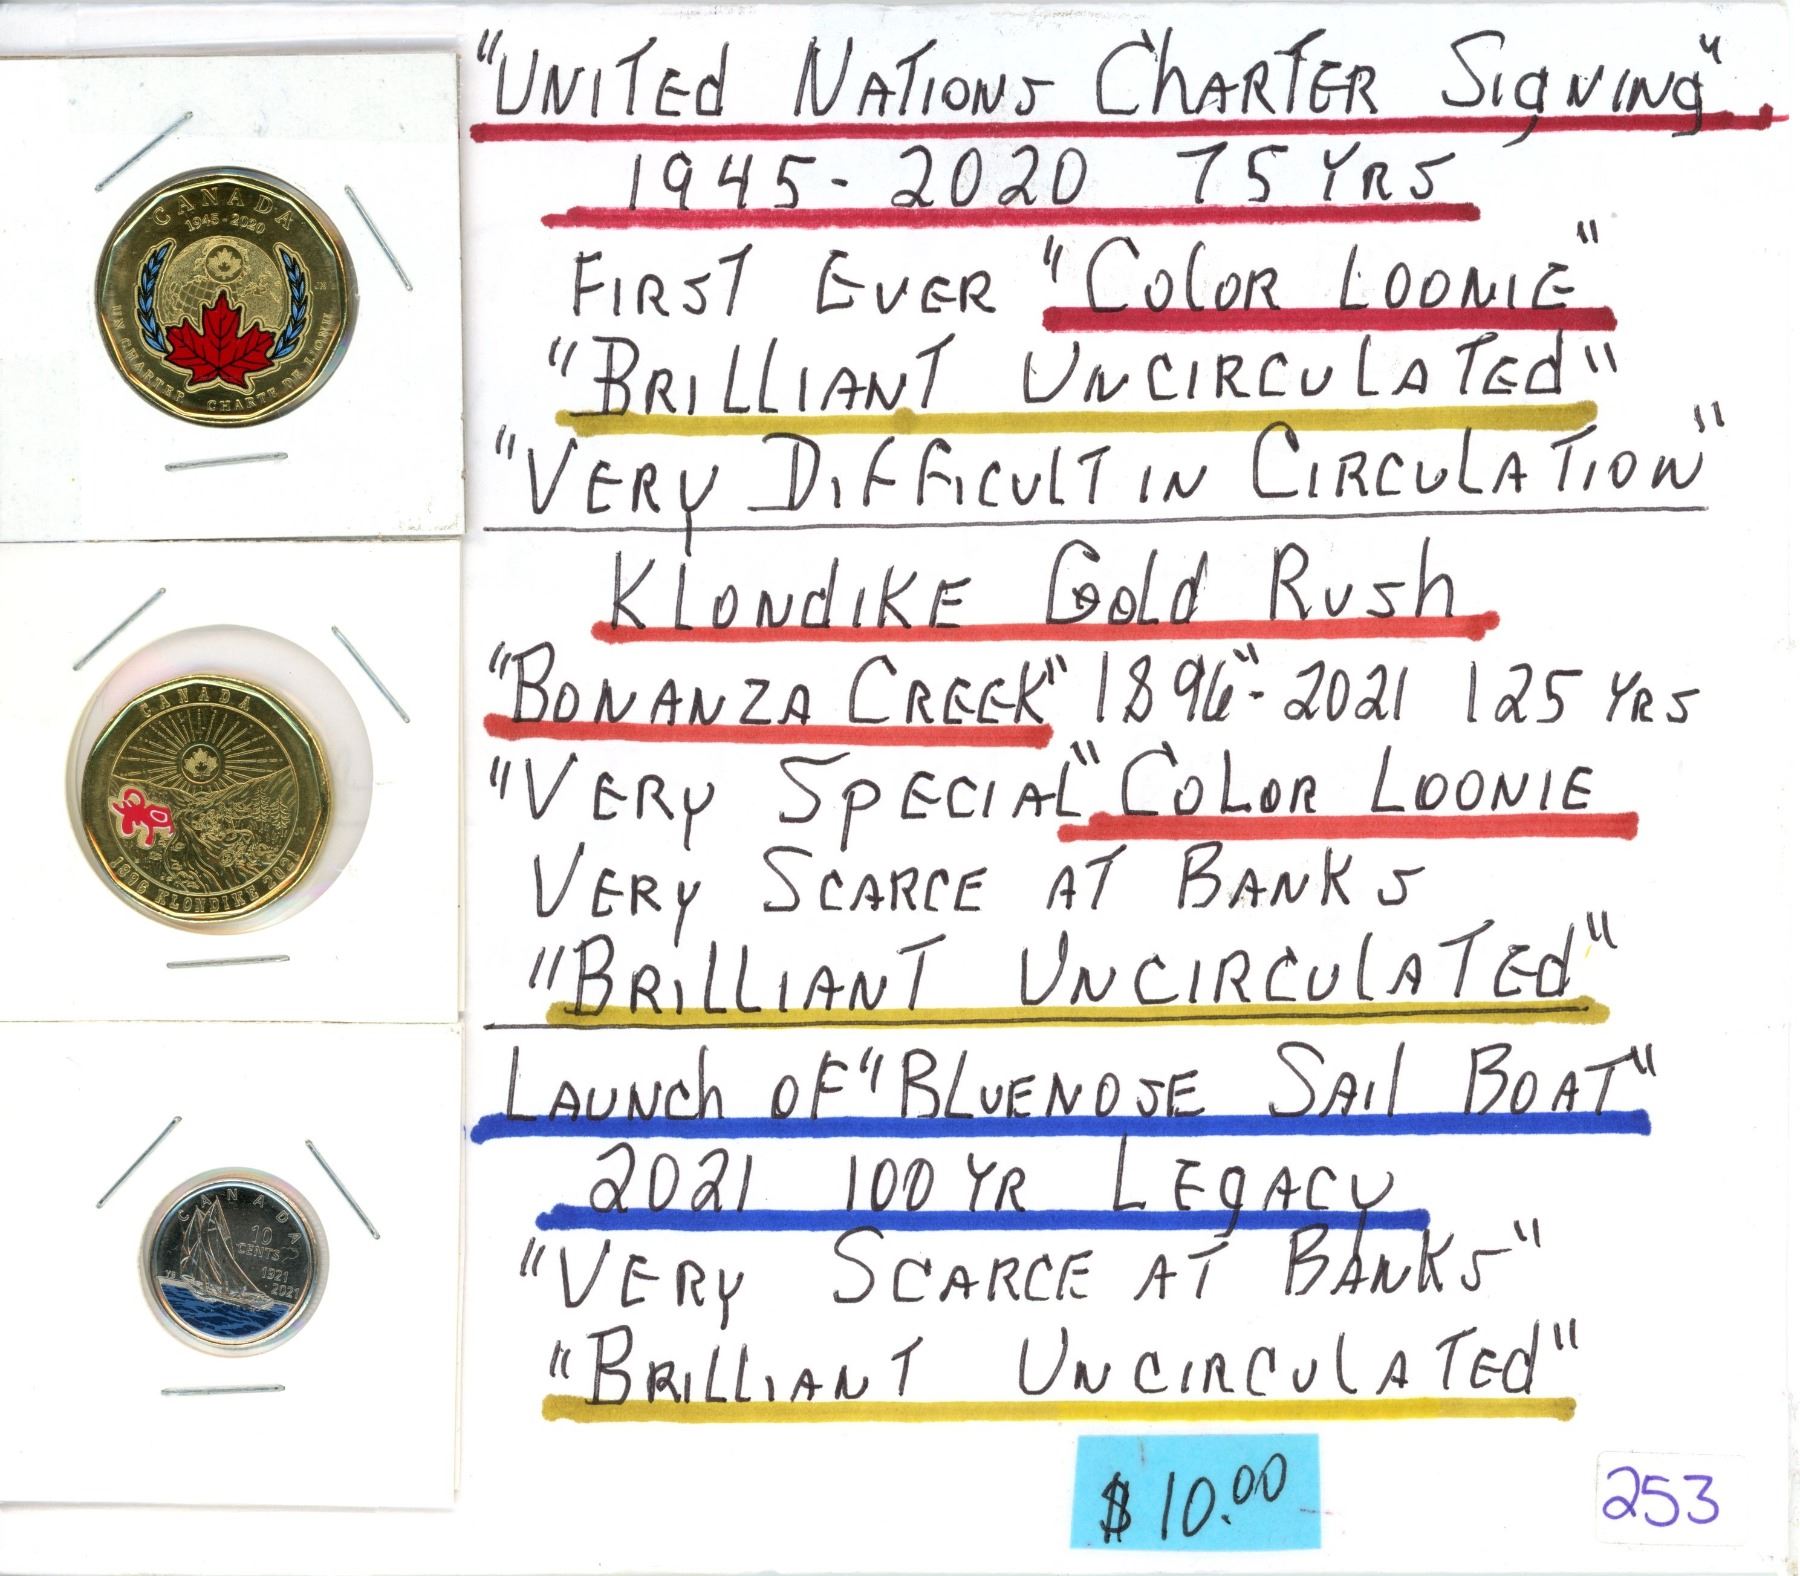 "UNITED NATIONS CHARTER SIGNING"
1945-2020 75 YRS
FIRST EVER "COLOR LOONIE"
"BRILLIANT UNCIRCULATED"
"VERY DIFFICULT IN CIRCULATION"
KLONDIKE GOLD RUSH
"BONANZA CREEK" 1896"-2021 125 YRS
"VERY SPECIAL" COLOR LOONIE
VERY SCARCE AT BANKS
"BRILLIANT UNCIRCULATED"
LAUNCH OF "BLUENOSE SAIL BOAT"
2021 100 YR LEGACY
"VERY SCARCE AT BANKS"
"BRILLIANT UNCIRCULATED"
$10.00
253
CANADA
1945-2020
UN CHARTER CHARTE DE L'ONU
CANADA
1896 KLONDIKE 2021
CANADA
10
CENTS
1921
2021